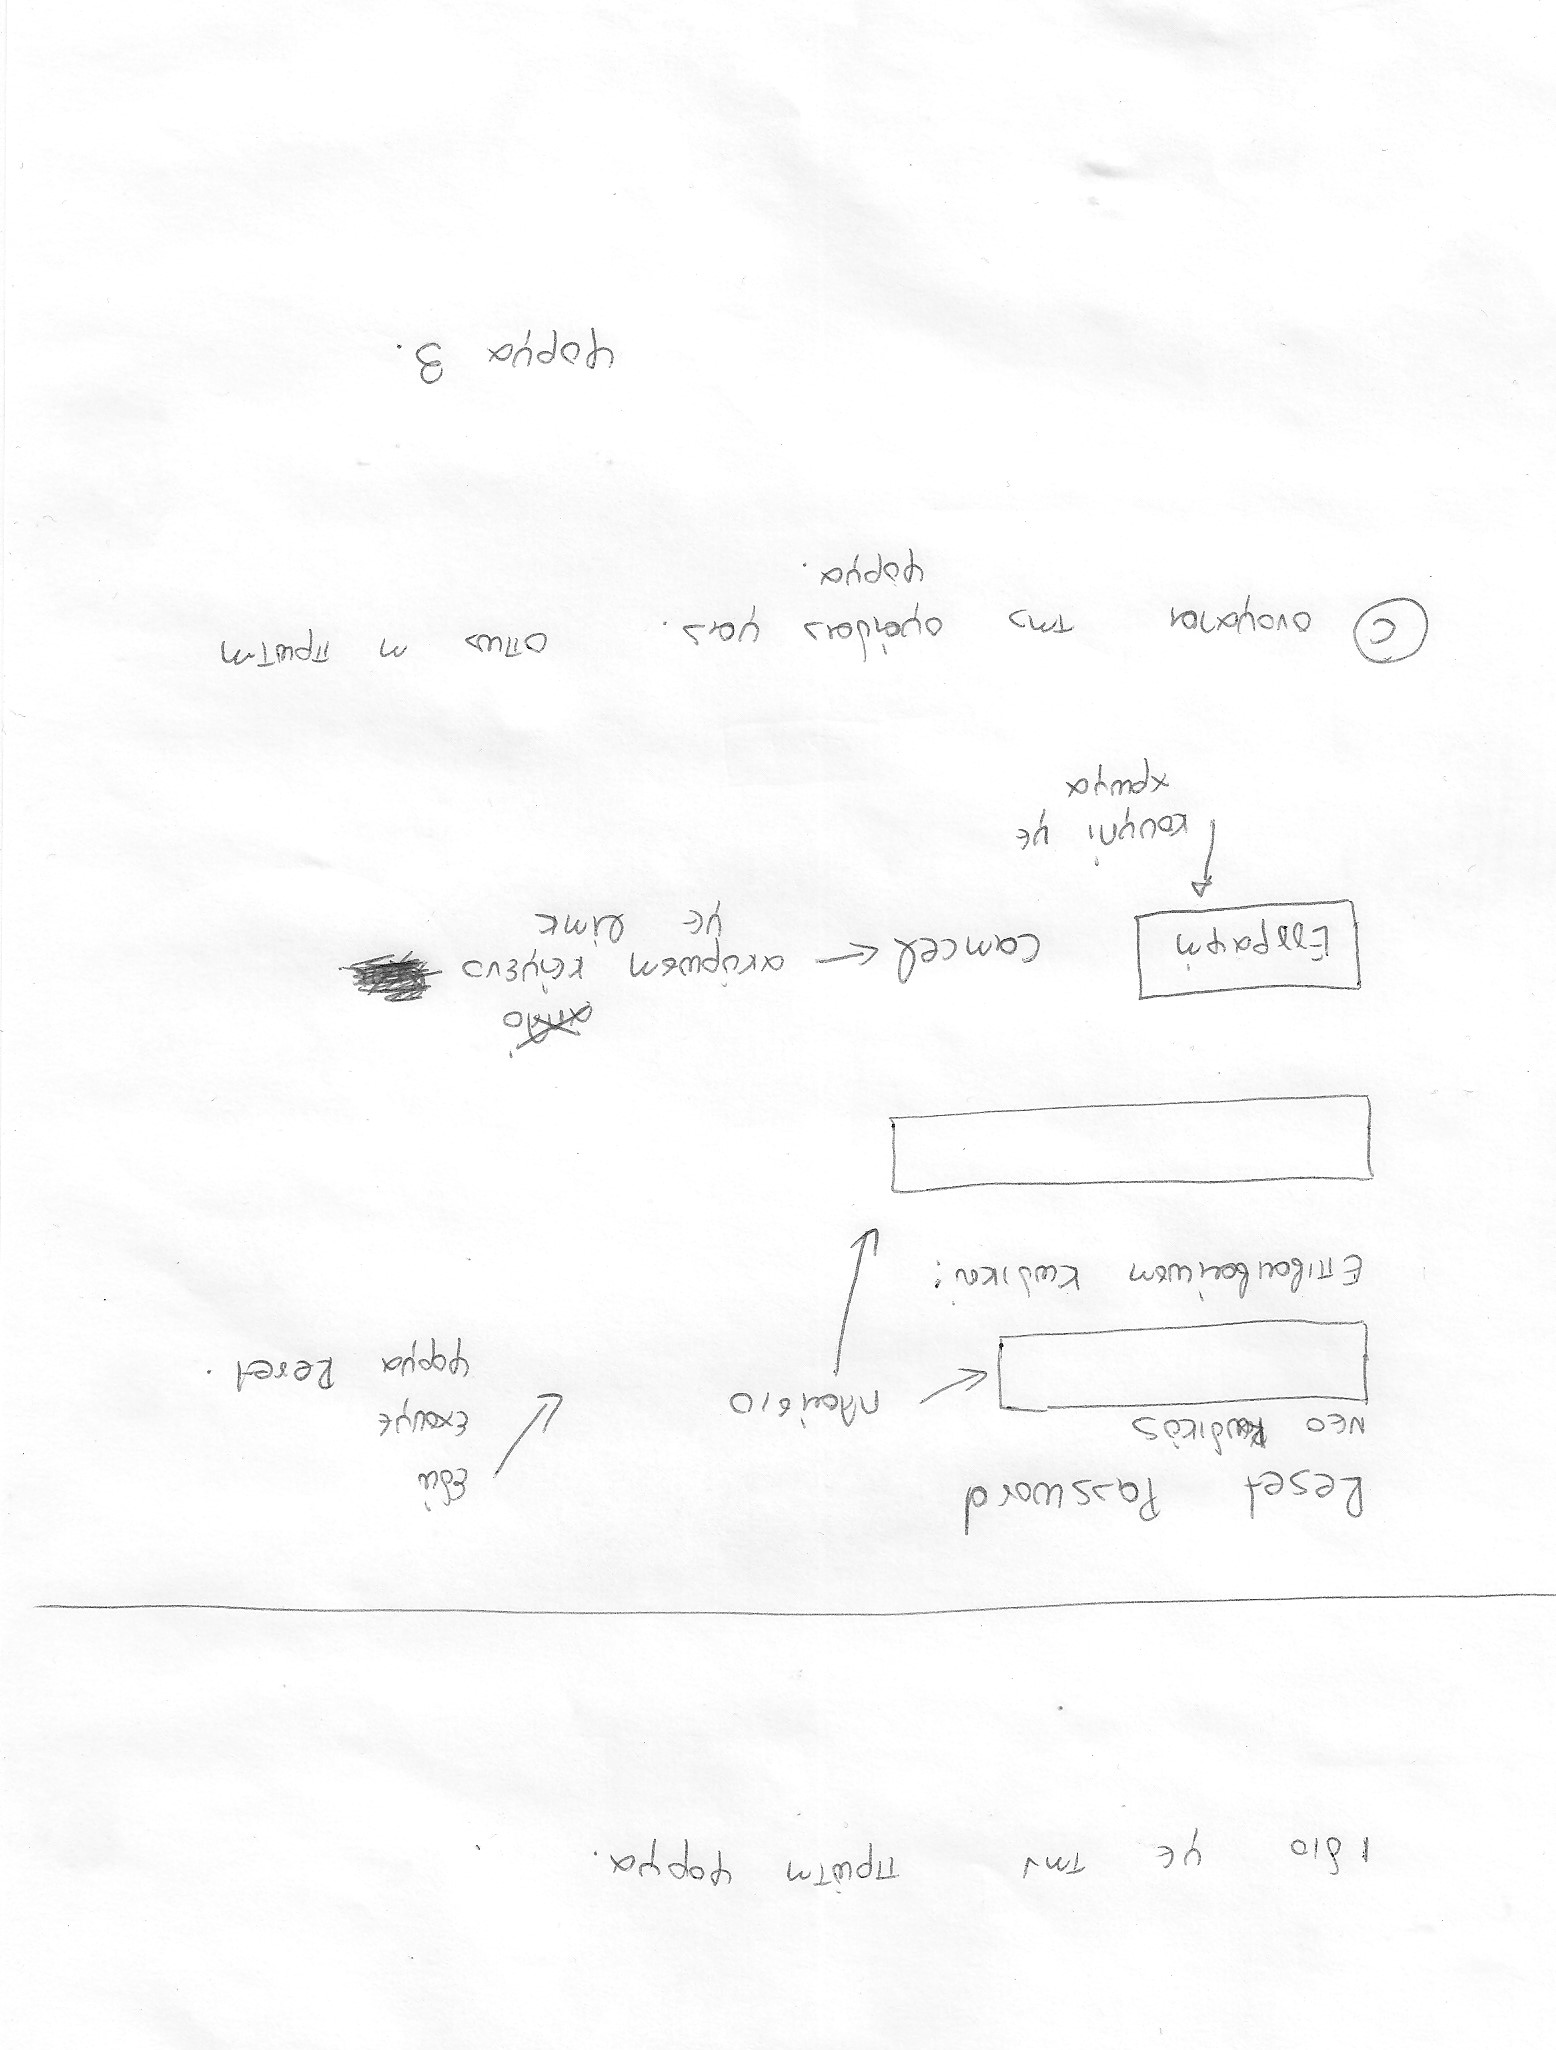 ιδιο με την πρώτη φορμα.
Reset Password
νεο Κωδικός
πλαίσιο
Εδώ
εχουμε
φορμα Reset.
Επιβαιβαίωση Κωδικού:
Εγγραφή
Cancel ← ακύρωση κείμενο
με link
κουμπί με
χρωμα
© ονοματα της ομάδας μας. οπως η πρωτη
φορμα.
φορμα 3.